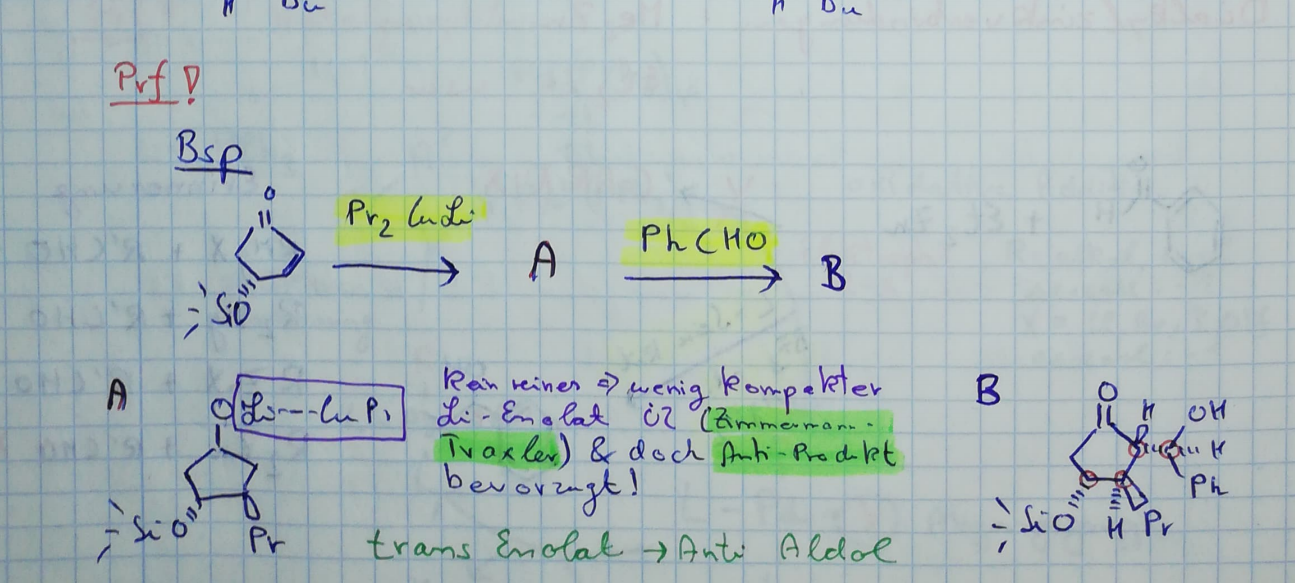 H Bu H Bu
Prf!
Bsp
O
Pr₂ CuLi
A
PhCHO
B
SiO
A
O Li---CuPr
SiO
Pr
kein reiner ⇒ wenig kompakter
Li-Enolat ÜZ (Zimmermann-
Traxler) & doch Anti-Produkt
bevorzugt!
trans Enolat → Anti Aldol
B
O
H OH
H
Ph
SiO H Pr